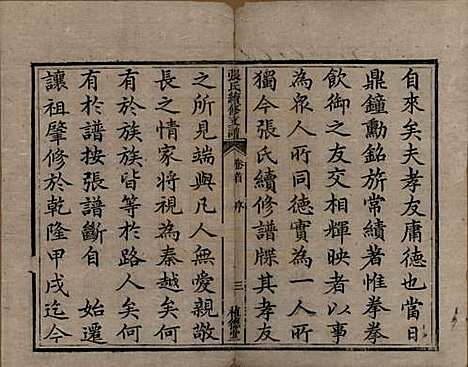 自來矣夫孝友庸德也當日
鼎鐘勳銘旂常績著惟拳拳
飲御之友交相輝映者以事
為衆人所同德實為一人所
獨今張氏續修譜牒其孝友
張氏續修支譜 卷首 序 三
之所見端與凡人無愛親敬
長之情家將視為秦越矣何
有於族族皆等於路人矣何
有於譜按張譜斷自 始遷
讓祖肇修於乾隆甲戌迄今